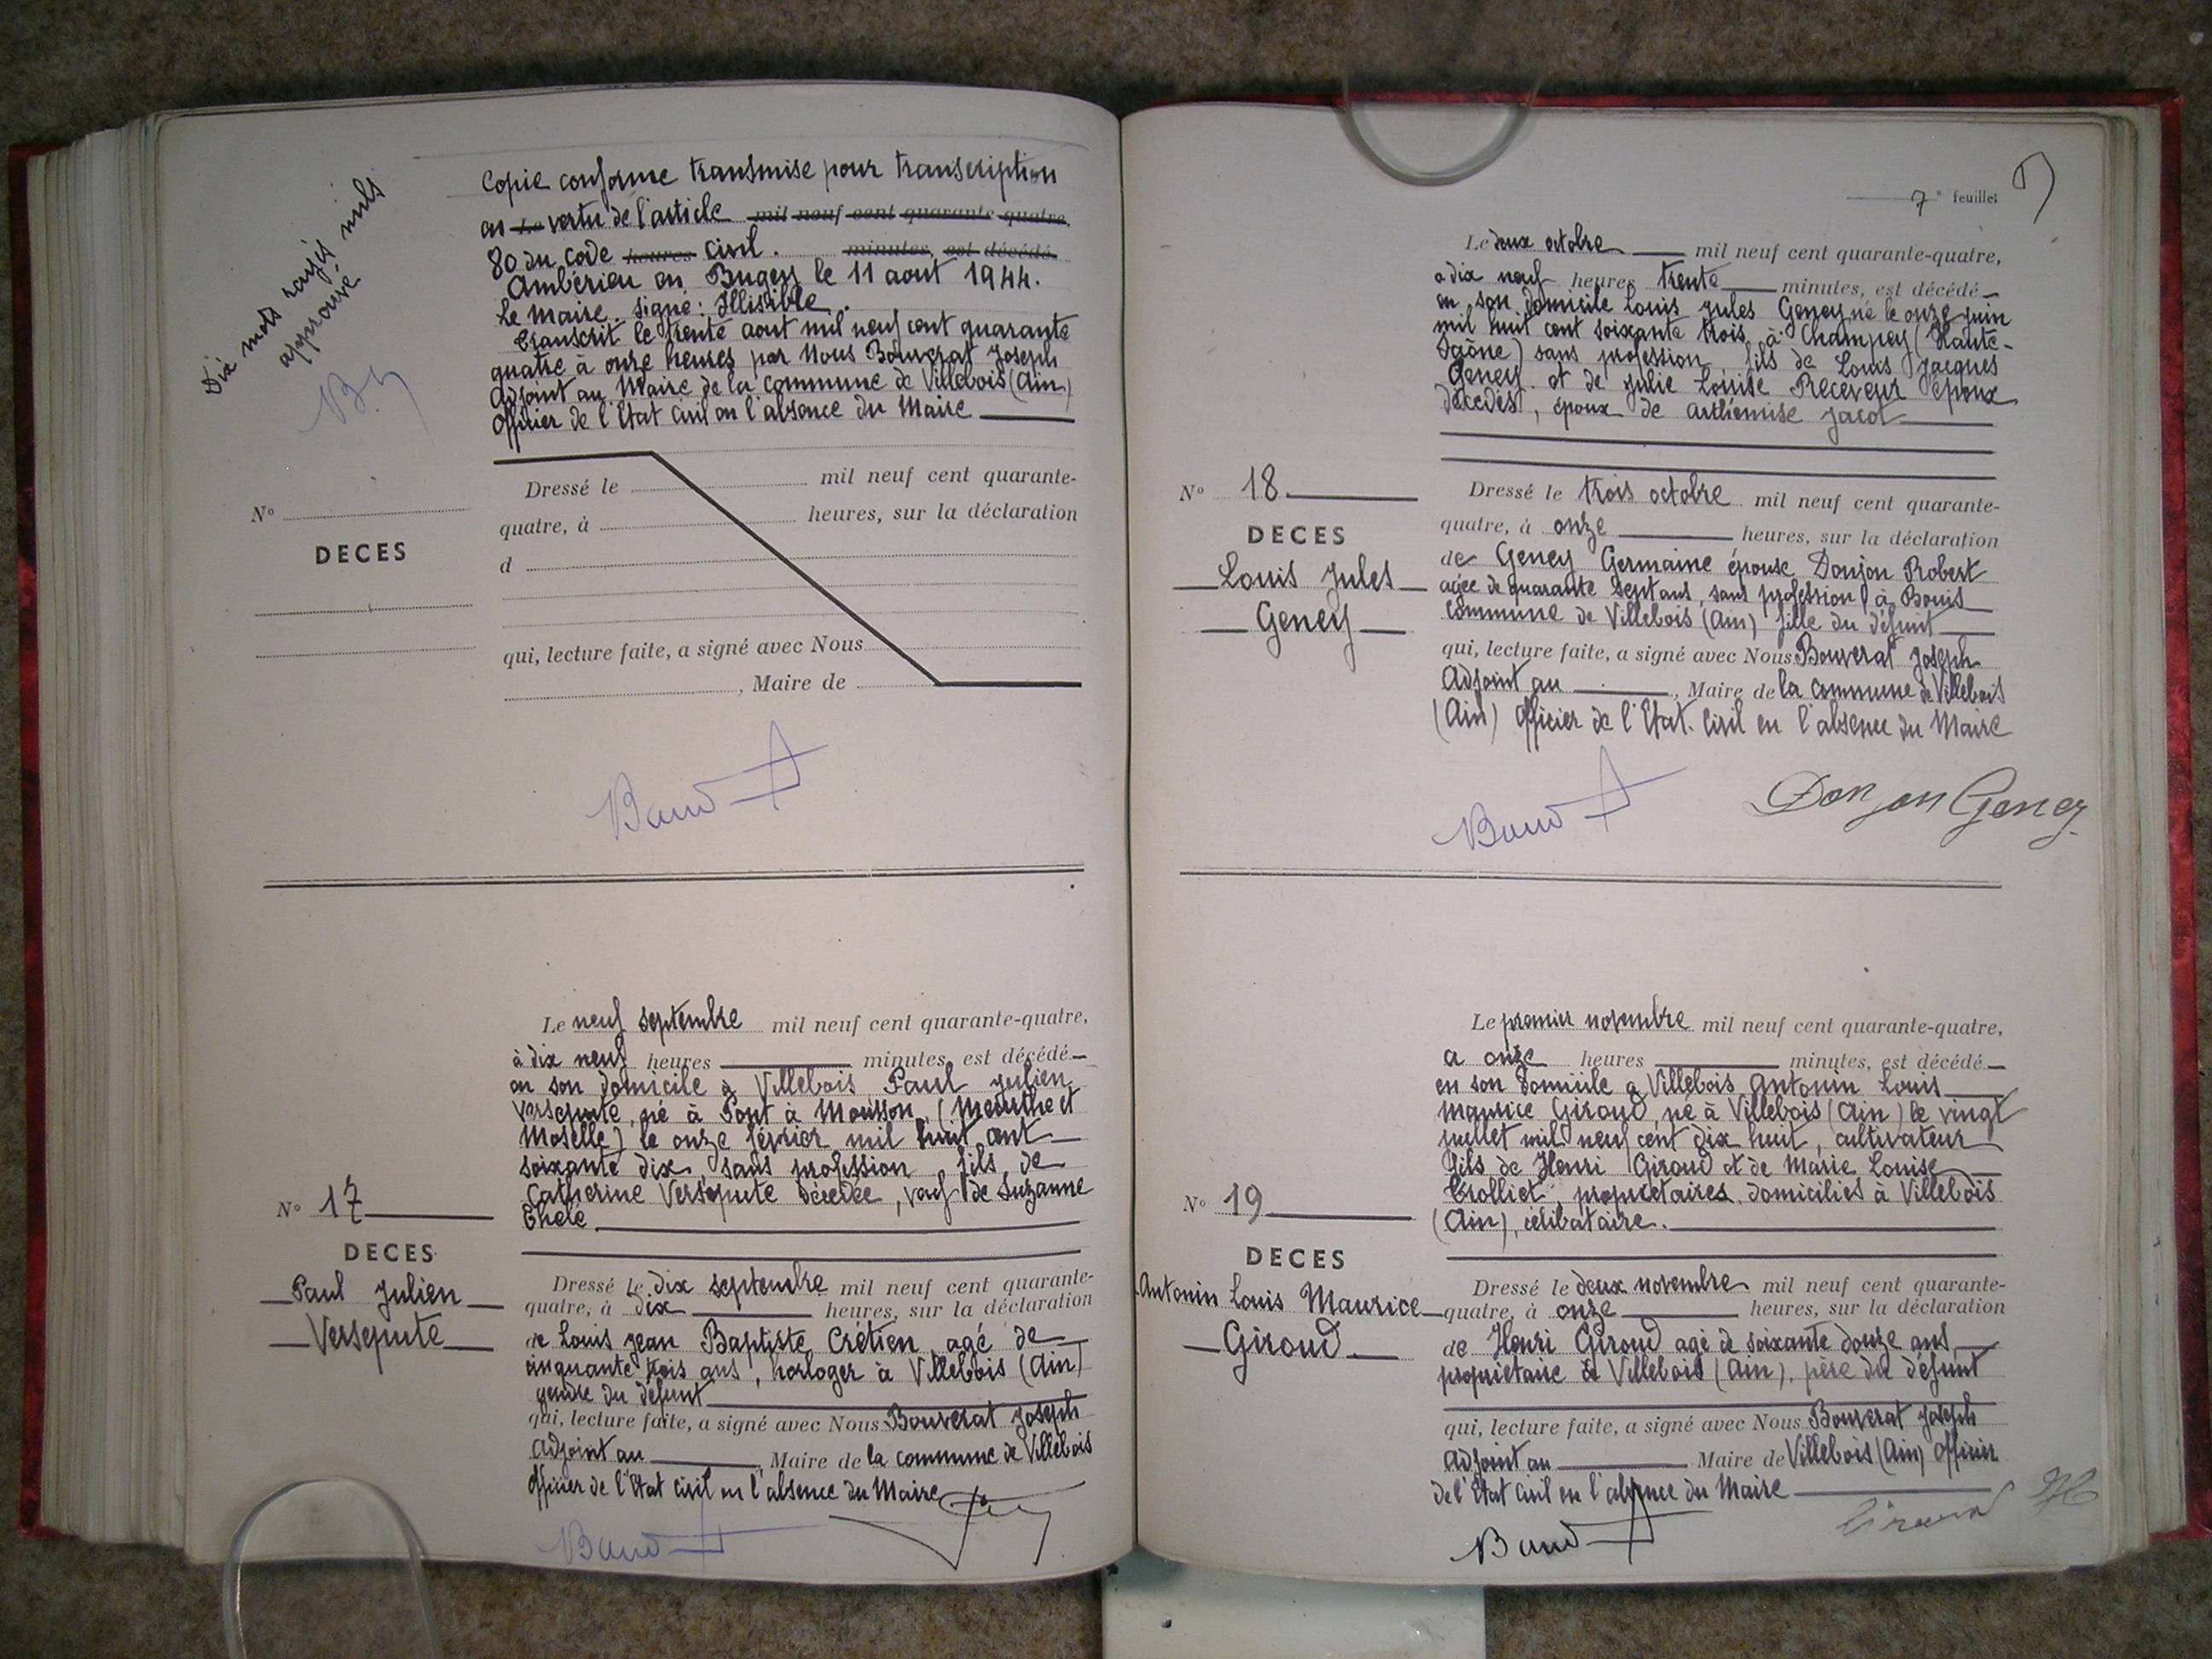 Dix mots rayés nuls
approuvé
Copie conforme transmise pour transcription
en Le vertu de l'article mil neuf cent quarante quatre,
80 du Code heures civil. minutes, est décédé
Ambérieu en Bugey le 11 aout 1944.
Le Maire. signé: Illisible.
Transcrit le trente aout mil neuf cent quarante
quatre à onze heures par Nous Bouverat Joseph
Adjoint au Maire de la Commune de Villebois (Ain)
Officier de l'Etat Civil en l'absence du Maire
N°
DECES
Dressé le mil neuf cent quarante-
quatre, à heures, sur la déclaration
d
qui, lecture faite, a signé avec Nous
, Maire de
Le neuf septembre mil neuf cent quarante-quatre,
à dix neuf heures minutes, est décédé
en son domicile à Villebois Paul Julien
Versepute, né à Pont à Mousson, (Meurthe et
Moselle) le onze février mil huit cent
soixante dix, sans profession, fils de
Catherine Versepute décédée, veuf de Suzanne
N° 17
DECES
Paul Julien
Versepute
Dressé le dix septembre mil neuf cent quarante-
quatre, à dix heures, sur la déclaration
de Louis Jean Baptiste Crétien agé de
cinquante trois ans, horloger à Villebois (Ain)
gendre du défunt
qui, lecture faite, a signé avec Nous Bouverat Joseph
Adjoint au , Maire de la commune de Villebois
Officier de l'Etat Civil en l'absence du Maire
7e feuillet
Le deux octobre mil neuf cent quarante-quatre,
a dix neuf heures trente minutes, est décédé
en son domicile Louis Jules Geney né le onze juin
mil huit cent soixante trois à Champey (Haute-
Saône) sans profession, fils de Louis Jacques
Geney et de Julie Louise Receveur époux
décédés, époux de Arthémise Jacot
N° 18
DECES
Louis Jules
Geney
Dressé le trois octobre mil neuf cent quarante-
quatre, à onze heures, sur la déclaration
de Geney Germaine épouse Donjon Robert
agée de quarante sept ans, sans profession, à Bouis
commune de Villebois (Ain) fille du défunt
qui, lecture faite, a signé avec Nous Bouverat Joseph
Adjoint au , Maire de la commune de Villebois
(Ain) Officier de l'Etat. Civil en l'absence du Maire
Donjon Geney
Le premier novembre mil neuf cent quarante-quatre,
a onze heures minutes, est décédé
en son domicile a Villebois Antonin Louis
Maurice Giroud, né à Villebois (Ain) le vingt
juillet mil neuf cent dix huit, cultivateur
fils de Henri Giroud et de Marie Louise
Trolliet, propriétaires, domiciliés à Villebois
(Ain), célibataire.
N° 19
DECES
Antonin Louis Maurice
Giroud
Dressé le deux novembre mil neuf cent quarante-
quatre, à onze heures, sur la déclaration
de Henri Giroud agé de soixante douze ans,
propriétaire à Villebois (Ain), père du défunt
qui, lecture faite, a signé avec Nous Bouverat Joseph
Adjoint au Maire de Villebois (Ain) Officier
de l'Etat Civil en l'absence du Maire
Giroud